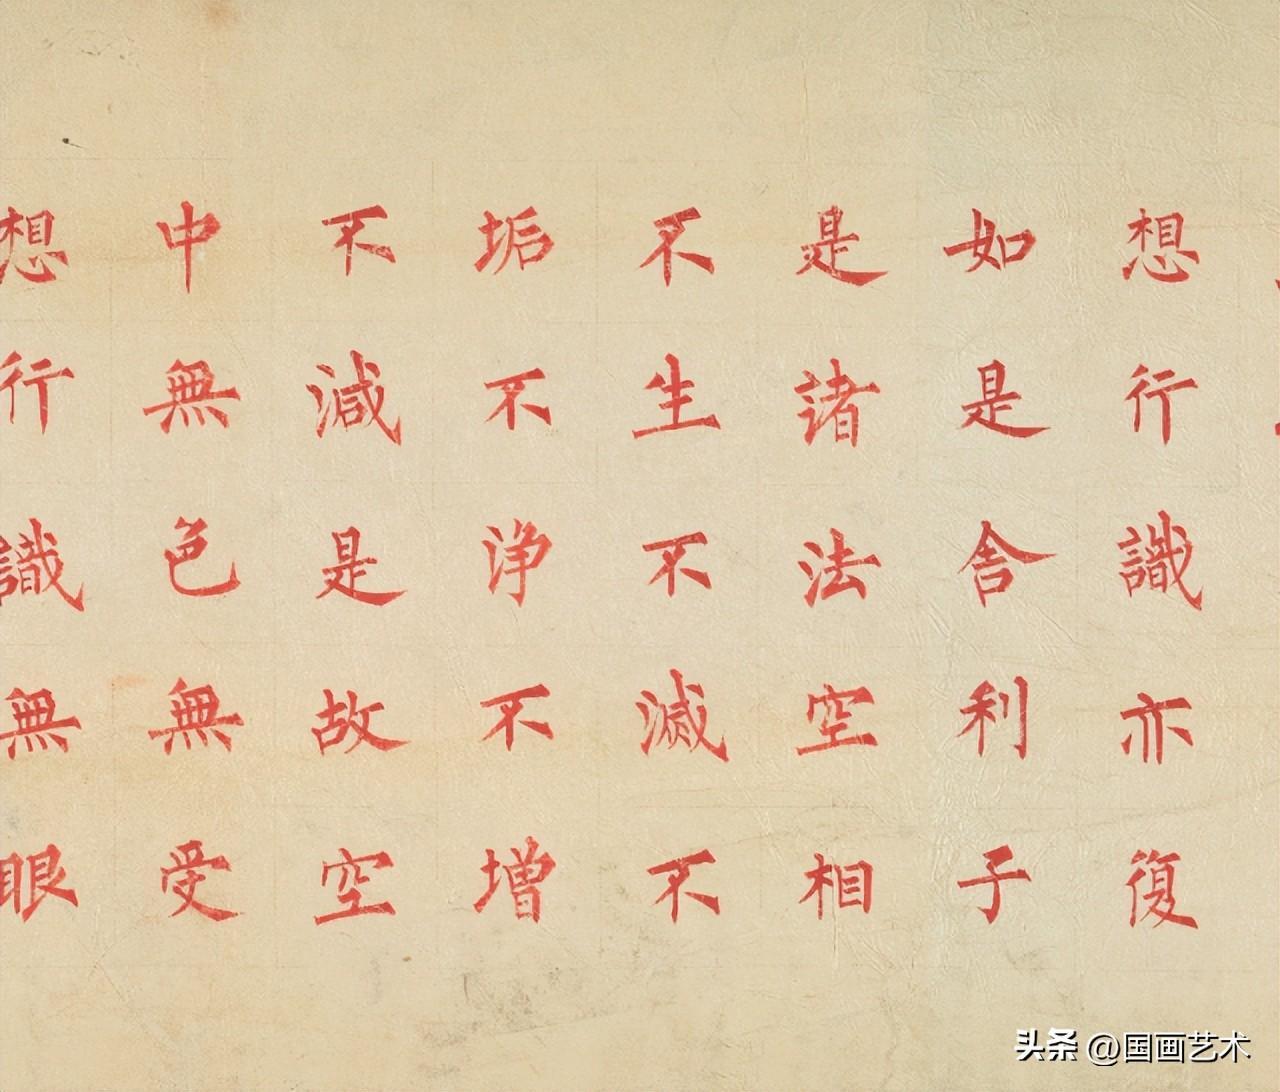 想行識亦復
如是舎利子
是諸法空相
不生不滅不
垢不浄不増
不減是故空
中無色無受
想行識無眼
头条 @国画艺术